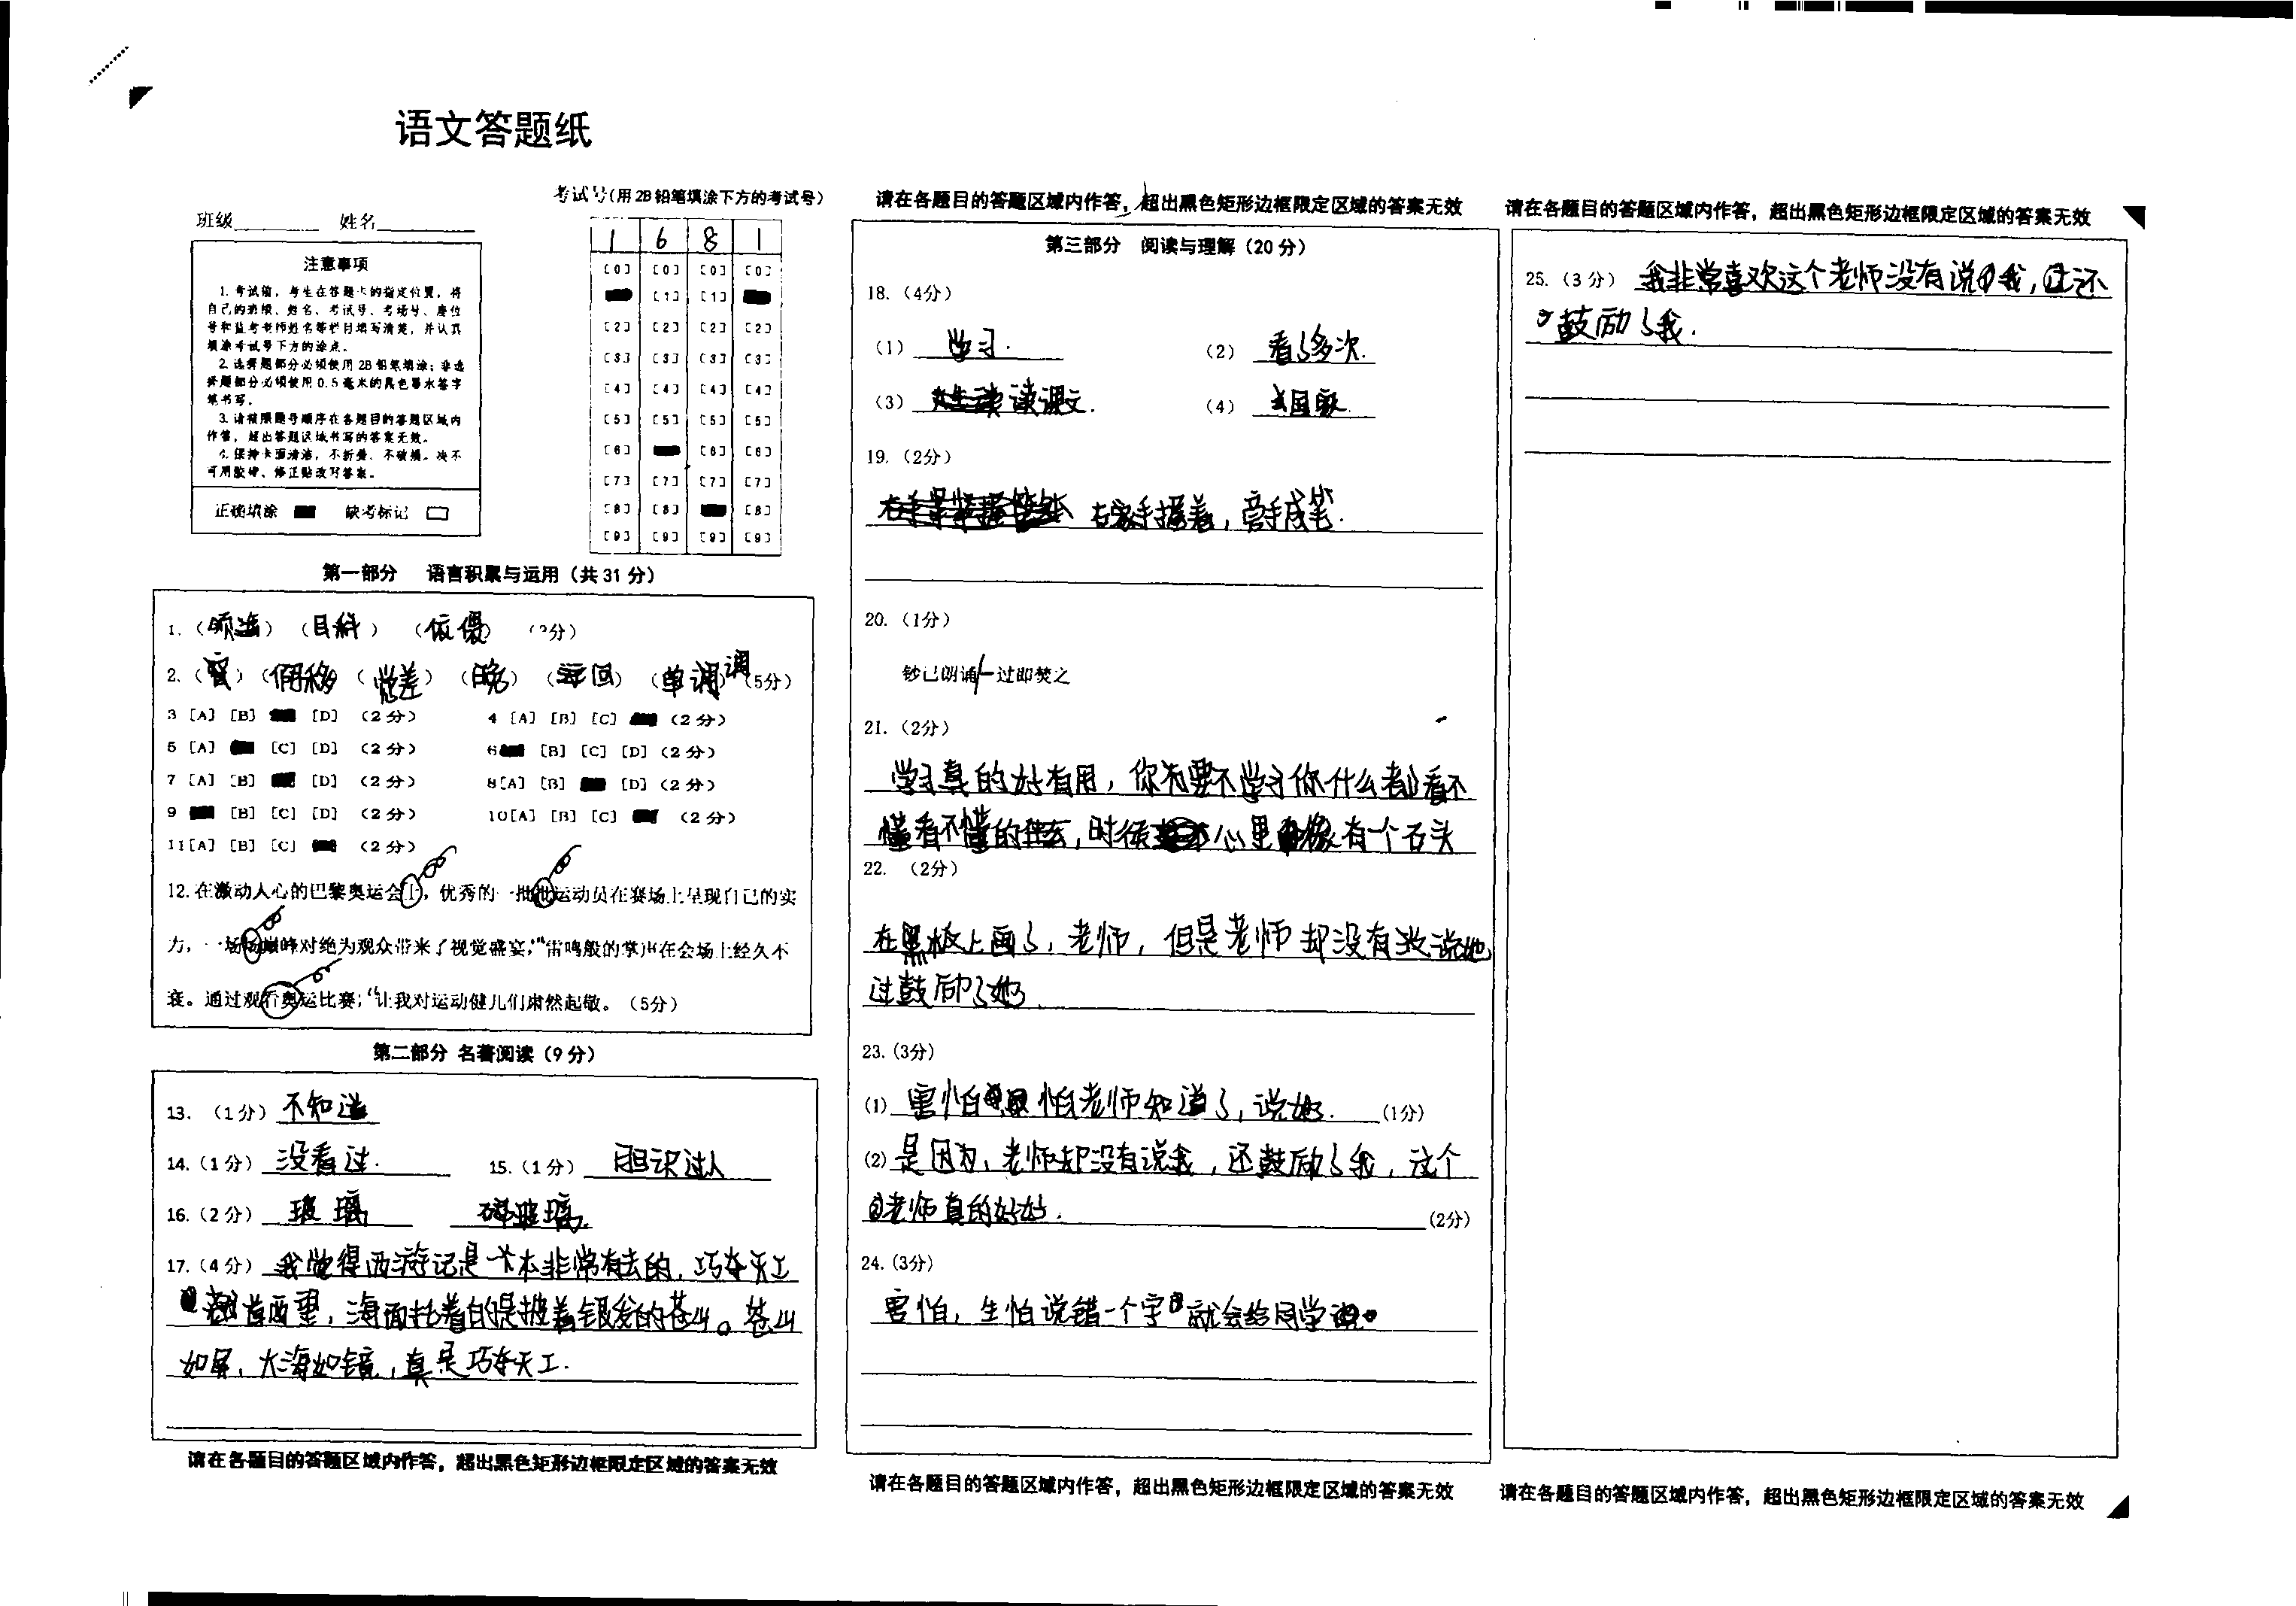 语文答题纸
考试号(用2B铅笔填涂下方的考试号)
班级 姓名
1 6 8 1
注意事项
1. 考试前，考生在答题卡的指定位置，将
自己的班级、姓名、考试号、考场号、座位
号和监考老师姓名等栏目填写清楚，并认真
填涂考试号下方的涂点。
2. 选择题部分必须使用2B铅笔填涂；非选
择题部分必须使用0.5毫米的黑色墨水签字
笔书写。
3. 请按照题号顺序在各题目的答题区域内
作答，超出答题区域书写的答案无效。
4. 保持卡面清洁，不折叠、不破损。决不
可用胶带、修正贴改写答案。
正确填涂 缺考标记
[0] [0] [0] [0]
[1] [1]
[2] [2] [2] [2]
[3] [3] [3] [3]
[4] [4] [4] [4]
[5] [5] [5] [5]
[6] [6] [6]
[7] [7] [7] [7]
[8] [8] [8]
[9] [9] [9] [9]
第一部分 语言积累与运用（共31分）
1.（ ）（ ）（ ）
2.（ ）（ ）（ ）（ ）（ ）（单调）（5分）
3 [A] [B] [D] （2分） 4 [A] [B] [C] （2分）
5 [A] [C] [D] （2分） 6 [B] [C] [D]（2分）
7 [A] [B] [D] （2分） 8[A] [B] [D]（2分）
9 [B] [C] [D] （2分） 10[A] [B] [C] （2分）
11[A] [B] [C] （2分）
12.在激动人心的巴黎奥运会上，优秀的一批批运动员在赛场上呈现自己的实
力，一场场巅峰对绝为观众带来了视觉盛宴；雷鸣般的掌声在会场上经久不
衰。通过观看奥运比赛；让我对运动健儿们肃然起敬。（5分）
第二部分 名著阅读（9分）
13.（1分）不知道
14.（1分）没看过. 15.（1分）胆识过人
16.（2分）玻璃 碎玻璃
17.（4分）我觉得西游记是一本非常有去的，巧夺天工
首西望，海面托着的是披着银发的苍山。苍山
如屏，大海如镜，真是巧夺天工.
请在各题目的答题区域内作答，超出黑色矩形边框限定区域的答案无效
请在各题目的答题区域内作答，超出黑色矩形边框限定区域的答案无效
第三部分 阅读与理解（20分）
18.（4分）
（1）学习. （2）看了多次.
（3）读课文. （4）
19.（2分）
20.（1分）
钞已朗诵/一过即焚之
21.（2分）
学习真的好有用，你为要不学习你什么都看不
懂看不懂的 ，时候 心里 像有一个石头
22. （2分）
在黑板上画了，老师，但是老师却没有 说她
过鼓励了她
23.（3分）
(1) 害怕 怕老师知道了，说她. (1分)
(2) 是因为，老师却没有说我，还鼓励了我，这个
老师真的好好. (2分)
24.（3分）
害怕，生怕说错一个字 就会给同学
请在各题目的答题区域内作答，超出黑色矩形边框限定区域的答案无效
请在各题目的答题区域内作答，超出黑色矩形边框限定区域的答案无效
25.（3分）我非常喜欢这个老师没有说 我， 还
鼓励了我.
请在各题目的答题区域内作答，超出黑色矩形边框限定区域的答案无效